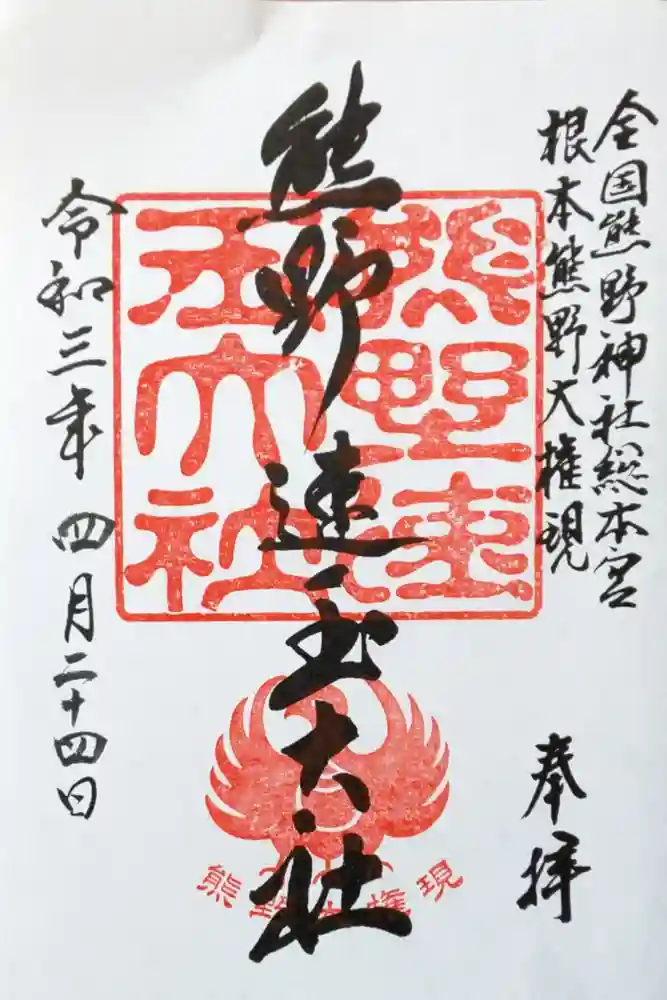 全国熊野神社総本宮
根本熊野大権現
奉拝
熊野速玉大社
熊野速玉大社
熊野大権現
令和三年四月二十四日